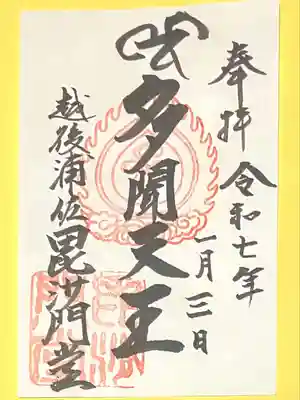 奉拝
令和七年
一月三日
多聞天王
越後浦佐毘沙門堂